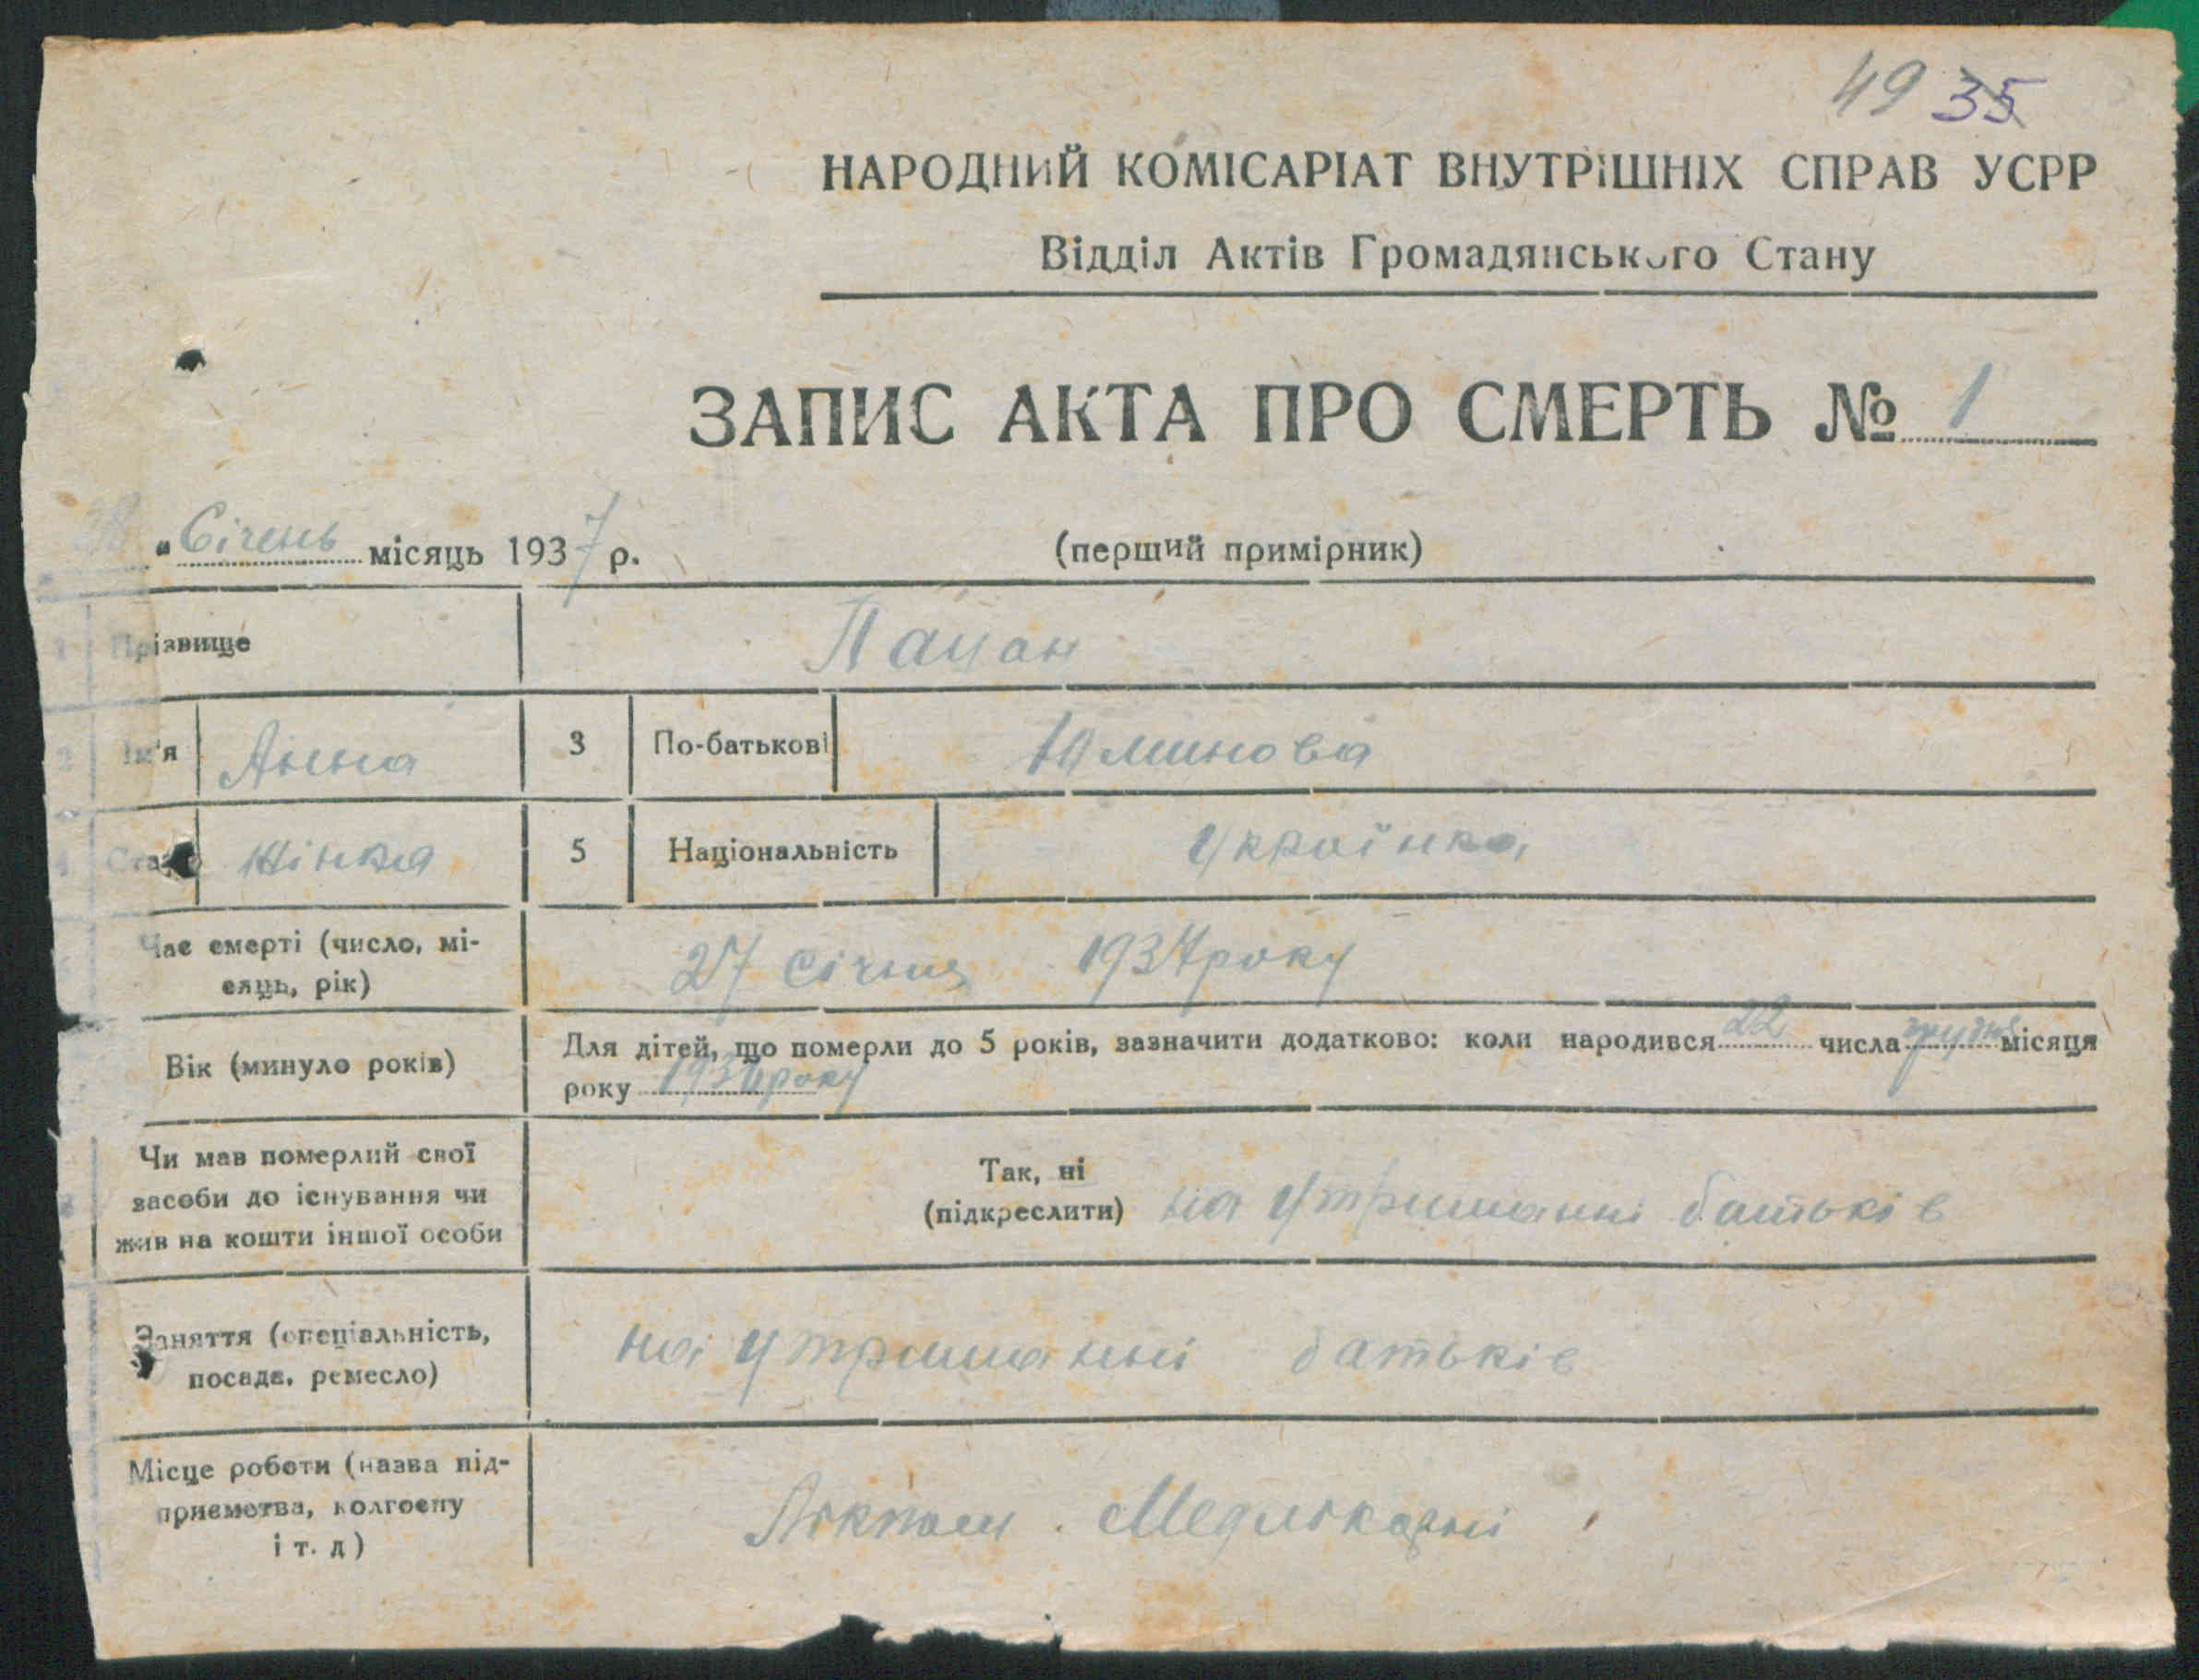 49 35
НАРОДНИЙ КОМІСАРІАТ ВНУТРІШНІХ СПРАВ УСРР
Відділ Актів Громадянського Стану
ЗАПИС АКТА ПРО СМЕРТЬ № 1
28 „ Січень місяць 1937 р. (перший примірник)
1 Прізвище Пацан
2 Ім'я Анна 3 По-батькові
4 Стать жінка 5 Національність Українка
Час смерті (число, мі-
сяць, рік) 27 січня 1937 року
Вік (минуло років) Для дітей, що померли до 5 років, зазначити додатково: коли народився 22 числа грудня місяця
року року
Чи мав померлий свої
засоби до існування чи
жив на кошти іншої особи
Так, ні
(підкреслити) на утриманні батьків
Заняття (спеціальність,
посада, ремесло) на утриманні батьків
Місце роботи (назва під-
приємства, колгоспу
і т. д)